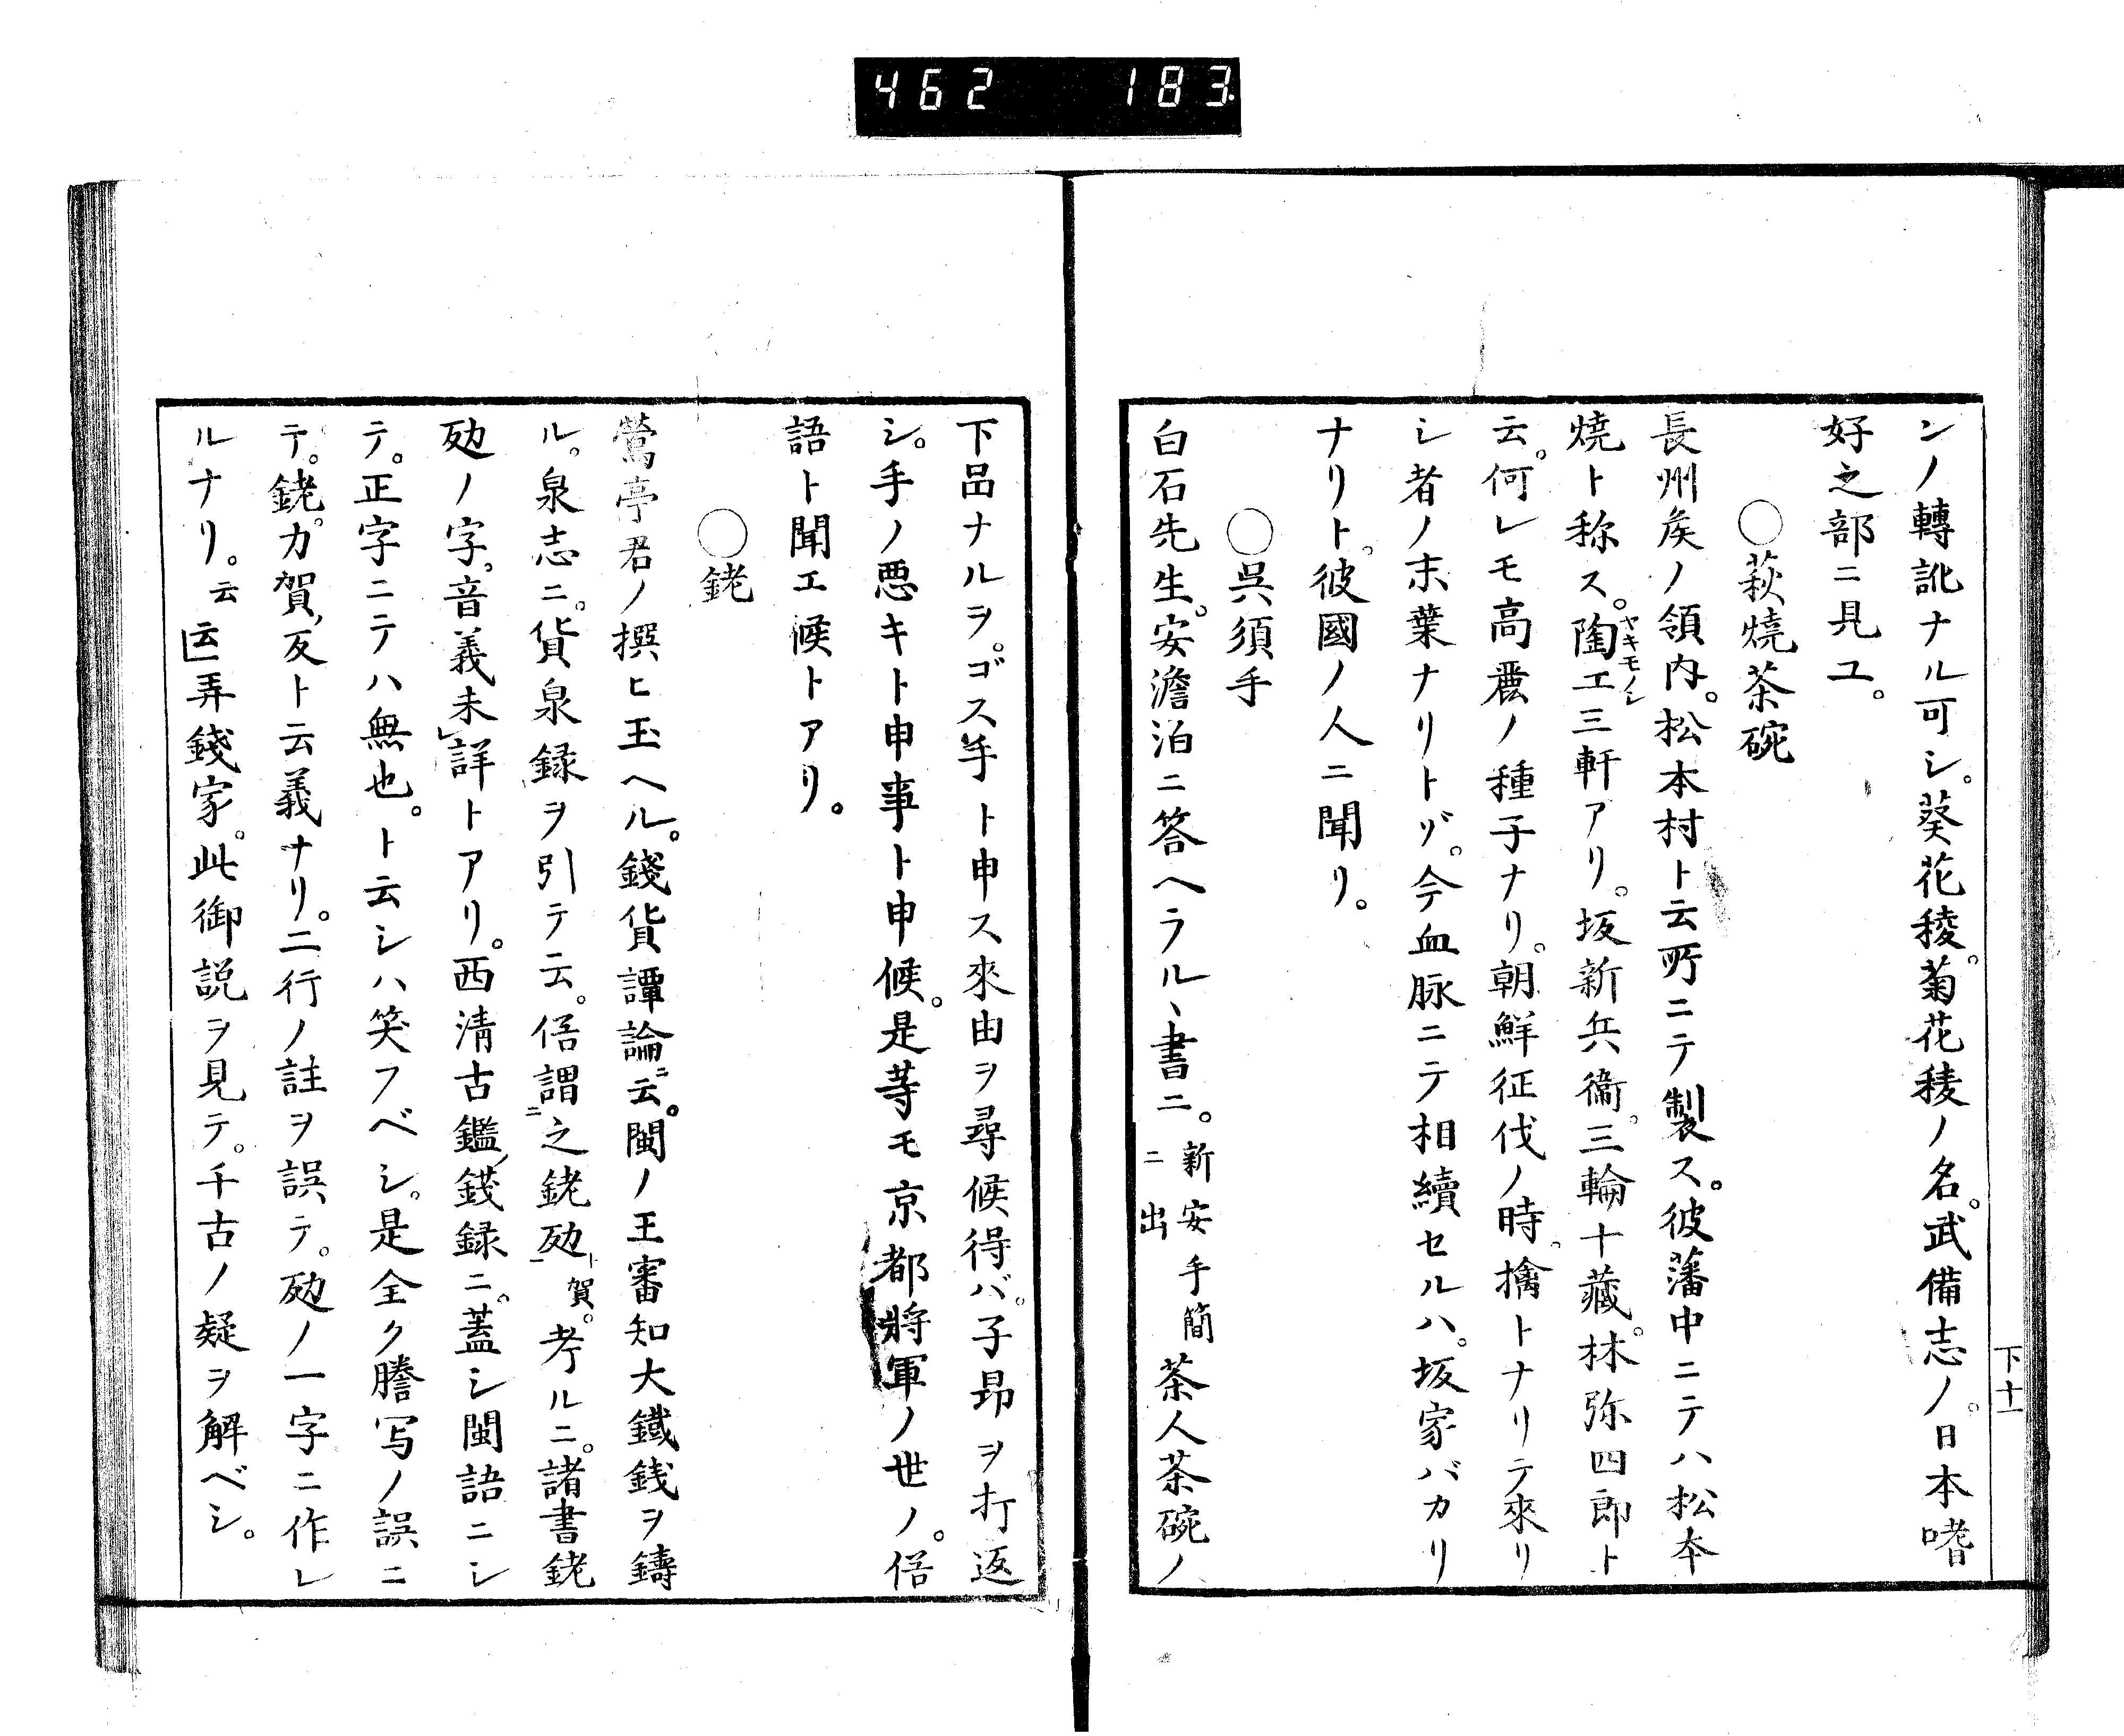 462 183
下十一
ンノ轉訛ナル可シ。葵花稜。菊花稜ノ名。武備志ノ。日本嗜
好之部ニ見ユ。
○萩燒茶碗
長州矦ノ領内。松本村ト云所ニテ製ス。彼藩中ニテハ松本
燒ト称ス。陶工三軒アリ。坂新兵衞。三輪十藏。林弥四郎ト
ヤキモノシ
云。何レモ高麗ノ種子ナリ。朝鮮征伐ノ時。擒トナリテ來リ
シ者ノ末葉ナリトゾ。今血脉ニテ相續セルハ。坂家バカリ
ナリト。彼國ノ人ニ聞リ。
○呉須手
白石先生。安澹泊ニ答ヘラル、書ニ。新安手簡ニ出 茶人茶碗ノ
下品ナルヲ。ゴス手ト申ス來由ヲ尋候得バ。子昂ヲ打返
シ。手ノ悪キト申事ト申候。是等モ京都將軍ノ世ノ。俗
語ト聞エ候トアリ。
○銠
鶯亭君ノ撰ヒ玉ヘル。錢貨譚論ニ云。閩ノ王審知大鐵銭ヲ鑄
ル。泉志ニ。貨泉録ヲ引テ云。俗謂之銠㔠ト賀。考ルニ。諸書銠
㔠ノ字。音義未詳トアリ。西清古鑑錢録ニ。蓋シ閩語ニシ
テ。正字ニテハ無也。ト云シハ笑フベシ。是全ク謄写ノ誤ニ
テ。銠。力賀反ト云義ナリ。二行ノ註ヲ誤テ。㔠ノ一字ニ作レ
ルナリ。云云弄錢家。此御説ヲ見テ。千古ノ疑ヲ解ベシ。